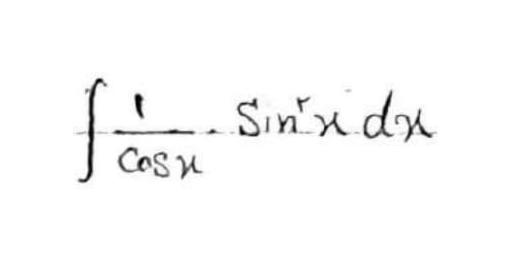 ∫ 1/cosx · Sin²x dx